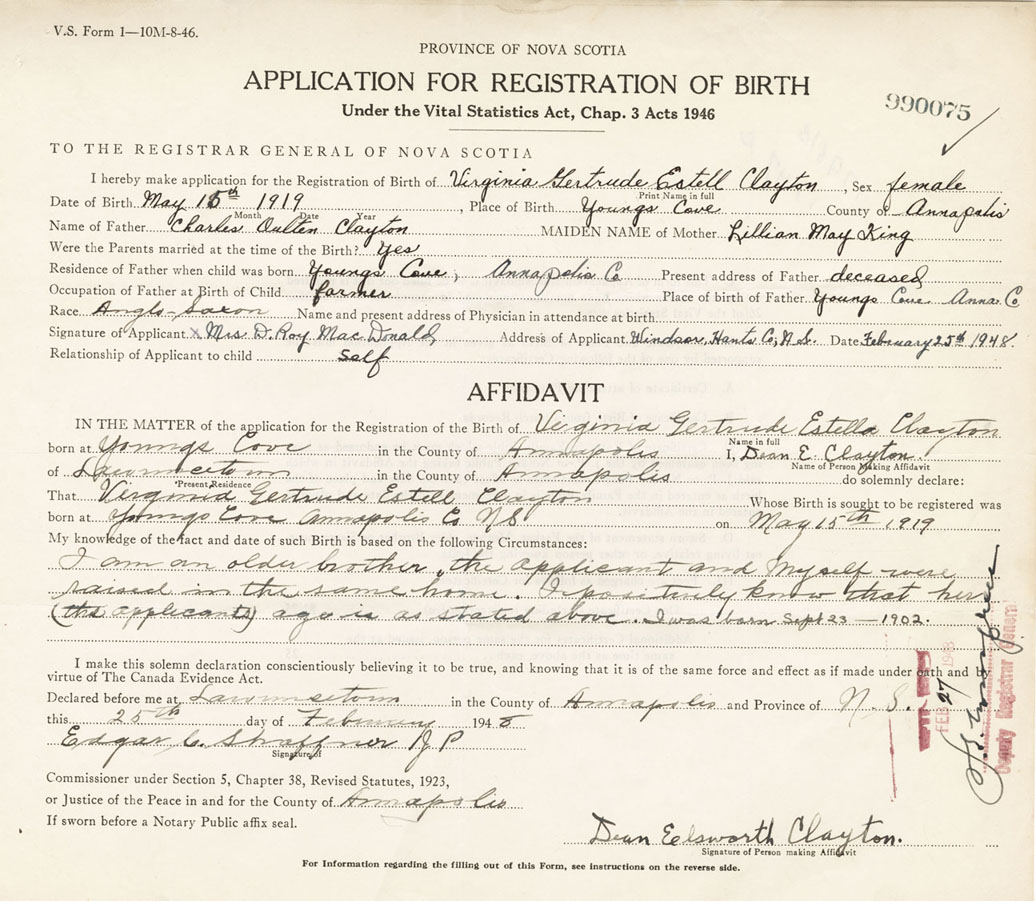 V.S. Form 1—10M-8-46.
PROVINCE OF NOVA SCOTIA
APPLICATION FOR REGISTRATION OF BIRTH
990075
Under the Vital Statistics Act, Chap. 3 Acts 1946
TO THE REGISTRAR GENERAL OF NOVA SCOTIA
I hereby make application for the Registration of Birth of Virginia Gertrude Estell Clayton, Sex female
Print Name in full
Date of Birth May 15th 1919, Place of Birth Youngs Cove County of Annapolis
Month Date Year
Name of Father Charles Oulten Clayton MAIDEN NAME of Mother Lillian May King
Were the Parents married at the time of the Birth? Yes
Residence of Father when child was born Youngs Cove, Annapolis Co Present address of Father deceased
Occupation of Father at Birth of Child farmer Place of birth of Father Youngs Cove Anna. Co
Race Anglo-Saxon Name and present address of Physician in attendance at birth
Signature of Applicant x Mrs D. Roy MacDonald Address of Applicant Windsor, Hants Co, N.S. Date February 25th 1948.
Relationship of Applicant to child Self
AFFIDAVIT
IN THE MATTER of the application for the Registration of the Birth of Virginia Gertrude Estella Clayton
Name in full
born at Youngs Cove in the County of Annapolis I, Dean E. Clayton.
Name of Person Making Affidavit
of Lawrencetown in the County of Annapolis do solemnly declare:
Present Residence
That Virginia Gertrude Estell Clayton Whose Birth is sought to be registered was
born at Youngs Cove Annapolis Co N S on May 15th 1919
My knowledge of the fact and date of such Birth is based on the following Circumstances:
I am an older brother, the applicant and Myself were
raised in the same home. I positively know that her
(the applicants) age is as stated above. I was born Sept 23 — 1902.
I make this solemn declaration conscientiously believing it to be true, and knowing that it is of the same force and effect as if made under oath and by
virtue of The Canada Evidence Act.
Declared before me at Lawrencetown in the County of Annapolis and Province of N. S.
this 25th day of February 1948
Edgar C. Shaffner J P
Signature of
Commissioner under Section 5, Chapter 38, Revised Statutes, 1923,
or Justice of the Peace in and for the County of Annapolis
If sworn before a Notary Public affix seal.
FEB 27 1948
Deputy Registrar General
Dean Eelsworth Clayton.
Signature of Person making Affidavit
For Information regarding the filling out of this Form, see instructions on the reverse side.